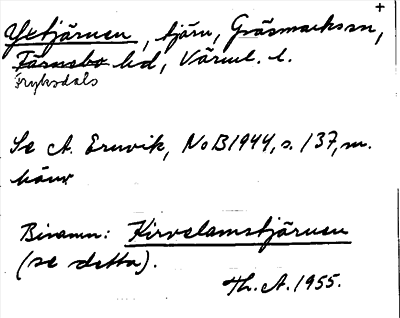 +
Yxtjärnen, tjärn, Gräsmarks sn,
Färnebo hd, Värml. l.
Fryksdals
Se A. Ernvik, NoB 1944, s. 137, m.
hänv.
Binamn: Kirvelamstjärnen
(se detta).
Th. A. 1955.